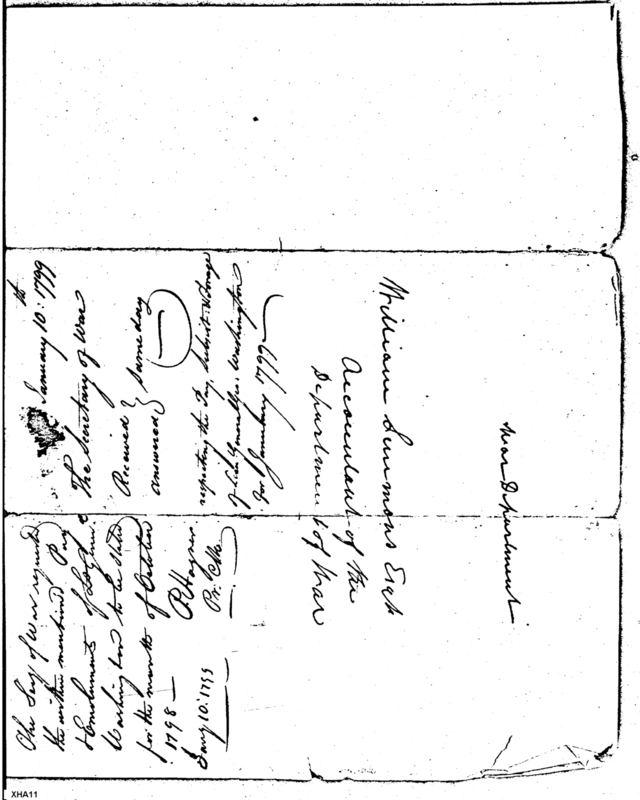 January 10th 1799
The Secretary of War
Received }
answered } same day
respecting the Pay, Subsist. & forage
of Lieut. Genl. Washington
for January 1799
The Secy of War requests
the within mentioned Pay
& Emoluments of
Washington to be stated
for the month of October
1798
Jany 10: 1799
P. Hagner
Pr. Clk
William Simmons Esqr
Accountant of the
Department of War
War Department
XHA11